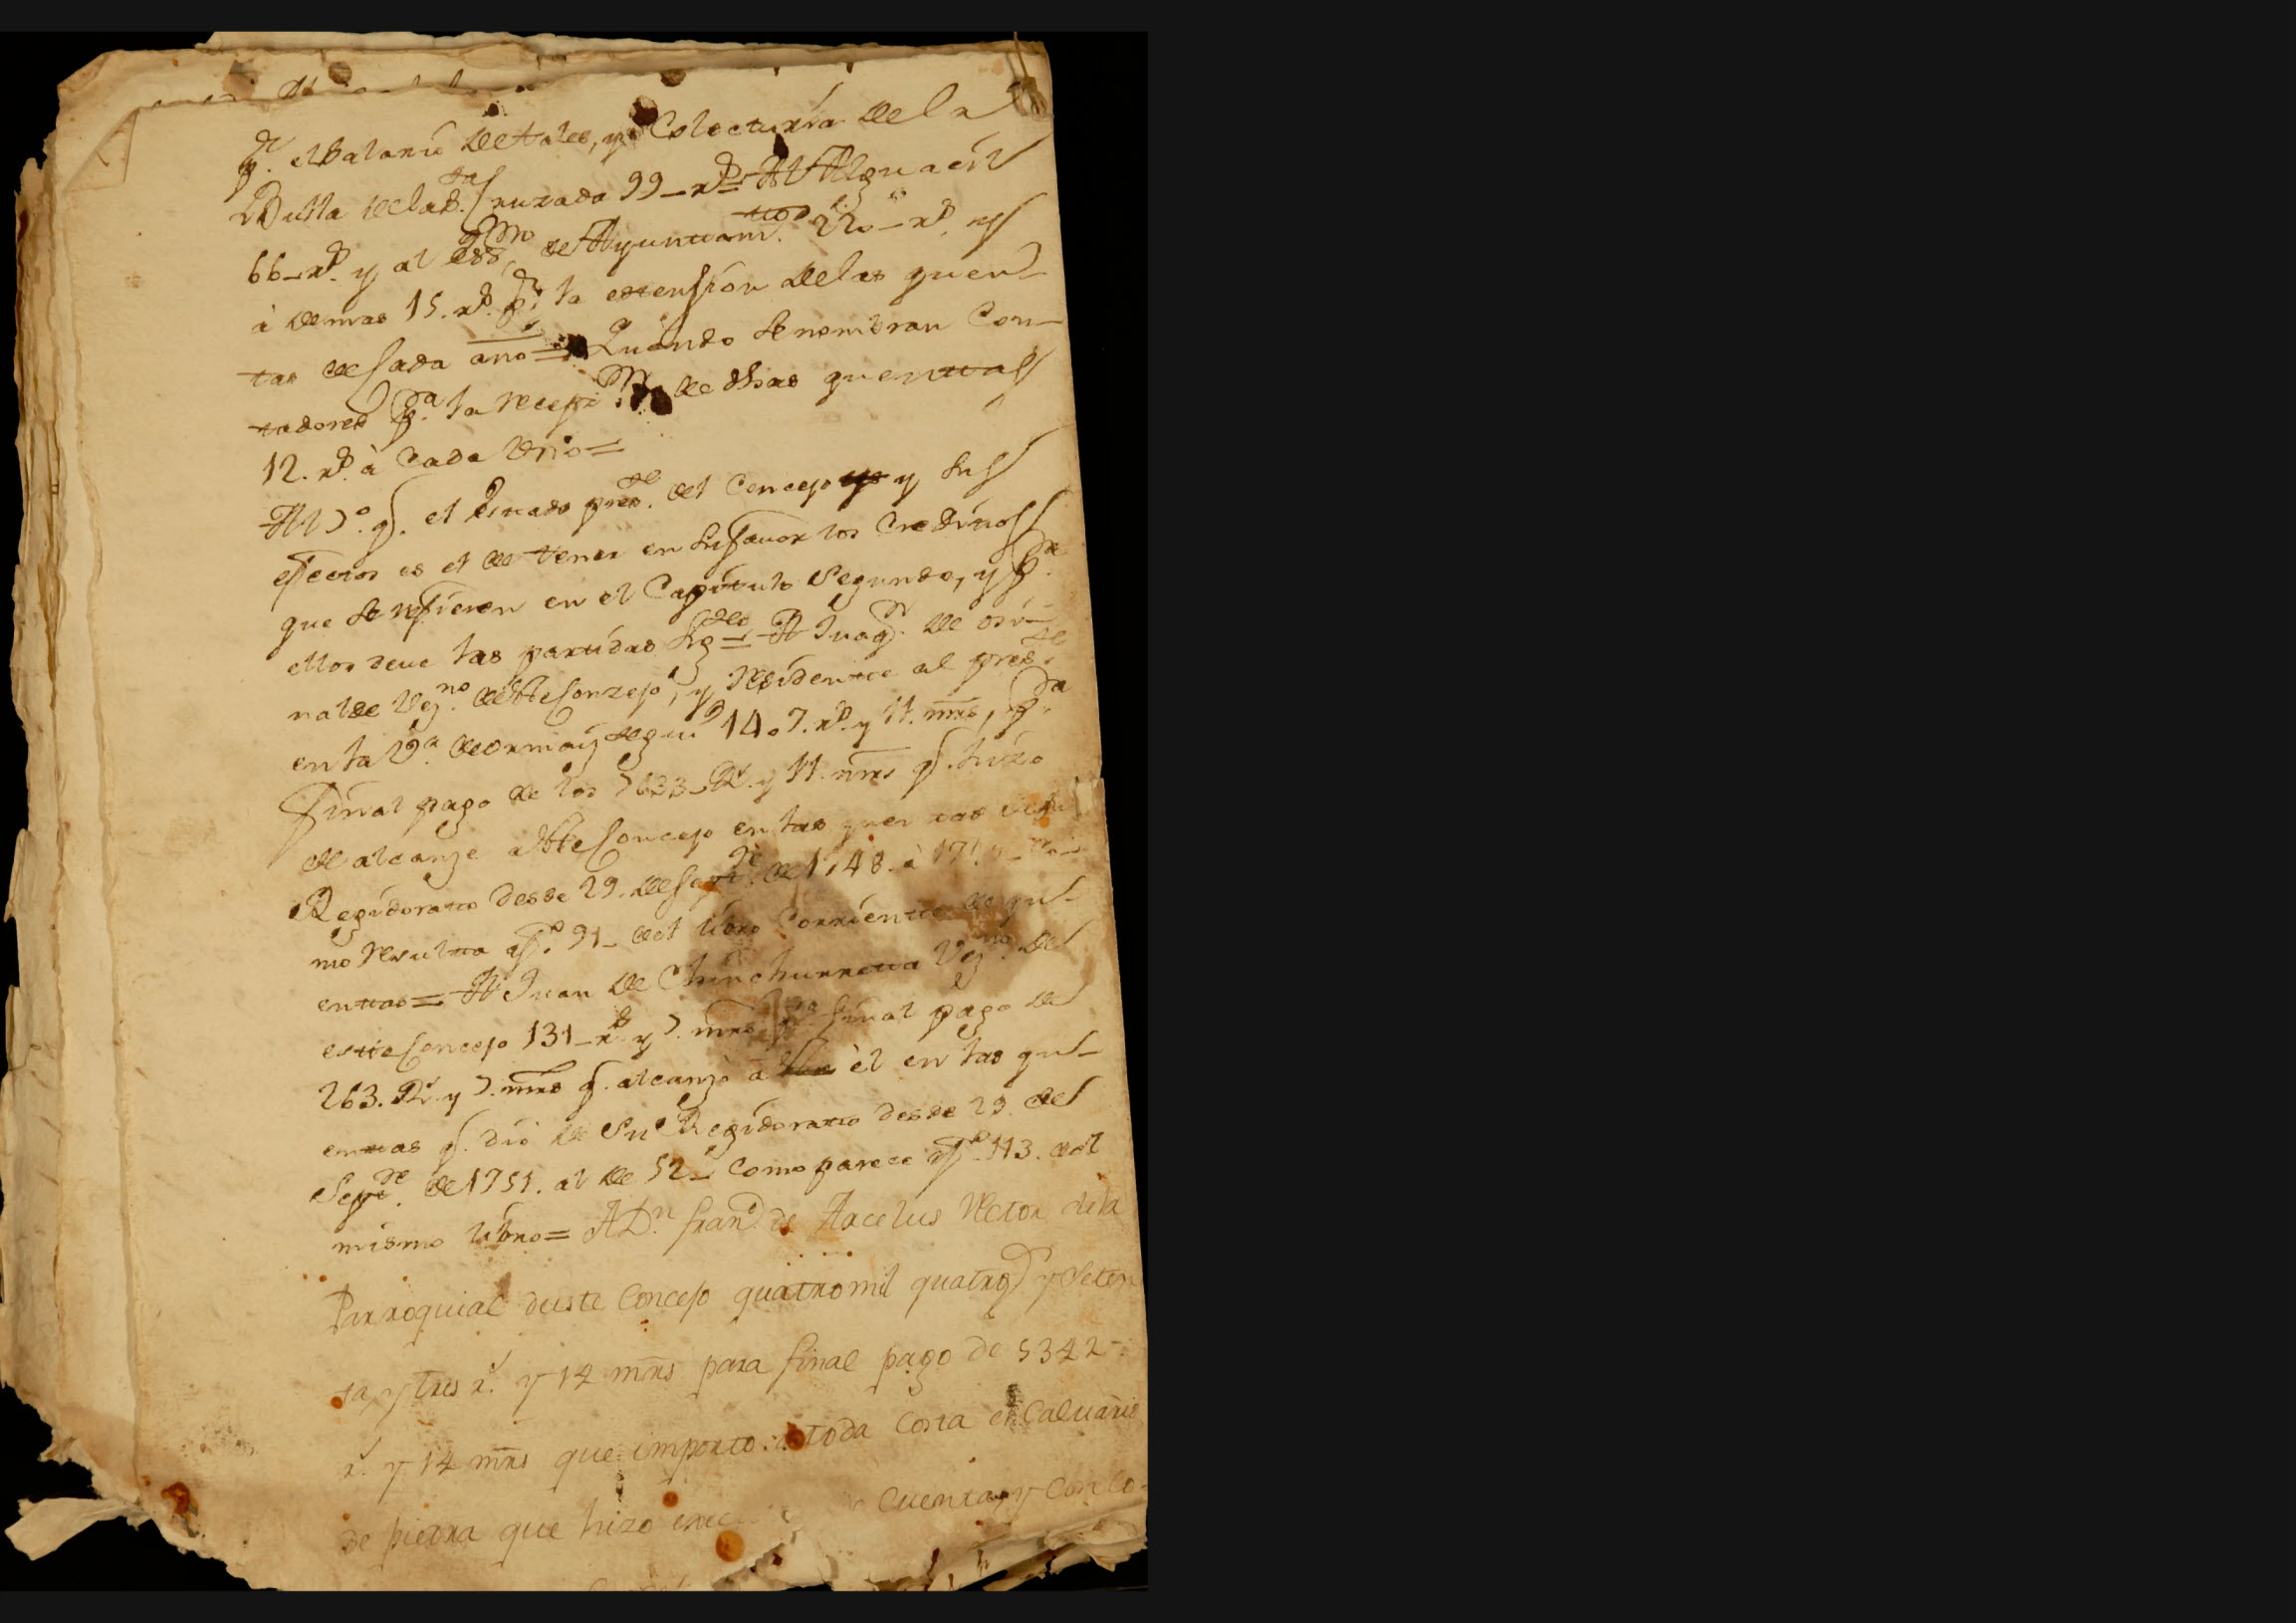 pr. el salario de tales, y Colecturia de la
Bulla de la sta Cruzada 99_rs= Al Alguacil
66_rs. y al essno de Ayuntamto. 220_rs. y
à demas 15. rs. pr. la extension de las quen_
tas de Cada año= Quando se nombran Con_
tadores pa. la recepn. de dhas quentas
12. rs. à Cada Uno=
Al 7º. q. el estado preste. del Concejo y sus
efectos es el de tener en su favor los Creditos
que se refieren en el Capitulo Segundo, y pa.
ellos deve las partidas sigtes= A Juaqn. de
nalde vezno. de este Conzejo, y residente al preste.
en la va. de ormaiztegui 1407. rs. y 11. mrs, pa.
final pago de los 7633_Rs. y 11. mrs q. hizo
de alcanze a este Concejo en las quentas de su
Regidorato desde 29. de Septre. de 1748. à
mo resulta al fo. 91_ del libro Corriente de qu_
entas= A Juan de Chinchurreta vezno. de
este Concejo 131_rs. y 7. mrs pa. final pago de
263. Rs. y 7. mrs q. alcanzó à èl en las qu_
entas q. dió de Su Regidorato desde 29. de
Septre. de 1751. al de 52_ como parece al fo. 113. del
mismo libro= A Dn. Franco. de Arcelus Rector de la
Parroquial de este Concejo quatro mil quatros. y Seten
ta y tres rs. y 14 mrs para final pago de 5342
rs. y 14 mrs que importo a toda Costa el Calvario
de piedra que hizo Cuenta, y Con Co-